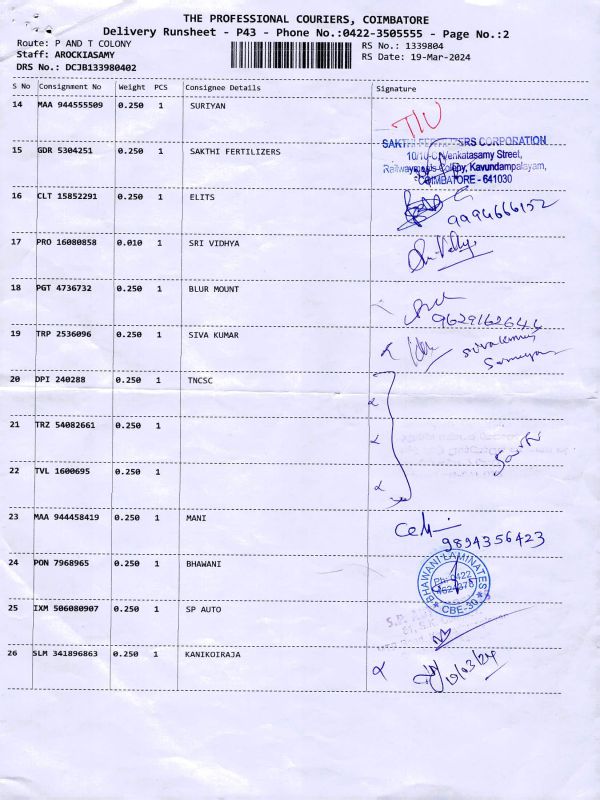 THE PROFESSIONAL COURIERS, COIMBATORE
Delivery Runsheet - P43 - Phone No.:0422-3505555 - Page No.:2
Route: P AND T COLONY
RS No.: 1339804
Staff: AROCKIASAMY
RS Date: 19-Mar-2024
DRS No.: DCJB133980402
S No Consignment No Weight PCS Consignee Details Signature
14 MAA 944555509 0.250 1 SURIYAN
15 GDR 5304251 0.250 1 SAKTHI FERTILIZERS
SAKTHI FERTILIZERS CORPORATION
10/10-C, Venkatasamy Street,
Colony, Kavundampalayam,
COIMBATORE - 641030
16 CLT 15852291 0.250 1 ELITS
9994666152
17 PRO 16080858 0.010 1 SRI VIDHYA
18 PGT 4736732 0.250 1 BLUR MOUNT
19 TRP 2536096 0.250 1 SIVA KUMAR
20 DPI 240288 0.250 1 TNCSC
21 TRZ 54082661 0.250 1
22 TVL 1600695 0.250 1
23 MAA 944458419 0.250 1 MANI
9894356423
24 PON 7968965 0.250 1 BHAWANI
BHAWANI LAMINATES
Ph: 0422
CBE-30
25 IXM 506080907 0.250 1 SP AUTO
26 SLM 341896863 0.250 1 KANIKOIRAJA